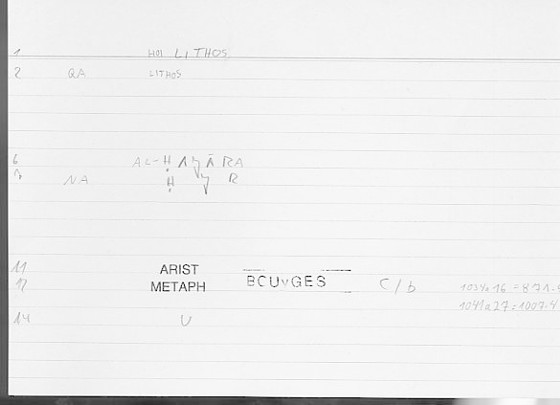 1 HOI LITHOS
2 QA LITHOS
6 AL-ḤAyĀRA
NA Ḥ y R
11 ARIST
12 METAPH BCUvGES C/b 1034a16=871.
1041a27=1007.4
14 U